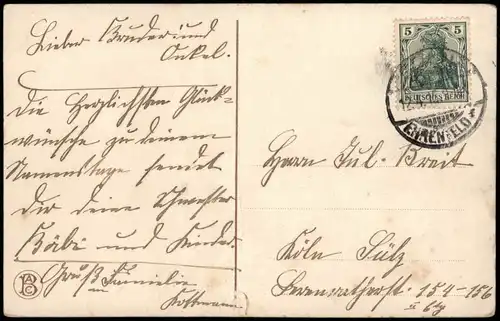 Lieber Bruder und
Onkel.
Die Herzlichsten Glück-
wünsche zu deinem
Namenstage sendet
dir deine Schwester
Bäbi und Kinder.
Gruß Familie
5 5
DEUTSCHES REICH
EHRENFELD
Herrn Jul. Breit
Köln Sülz
Berrenratherst. 154-156
II Etg